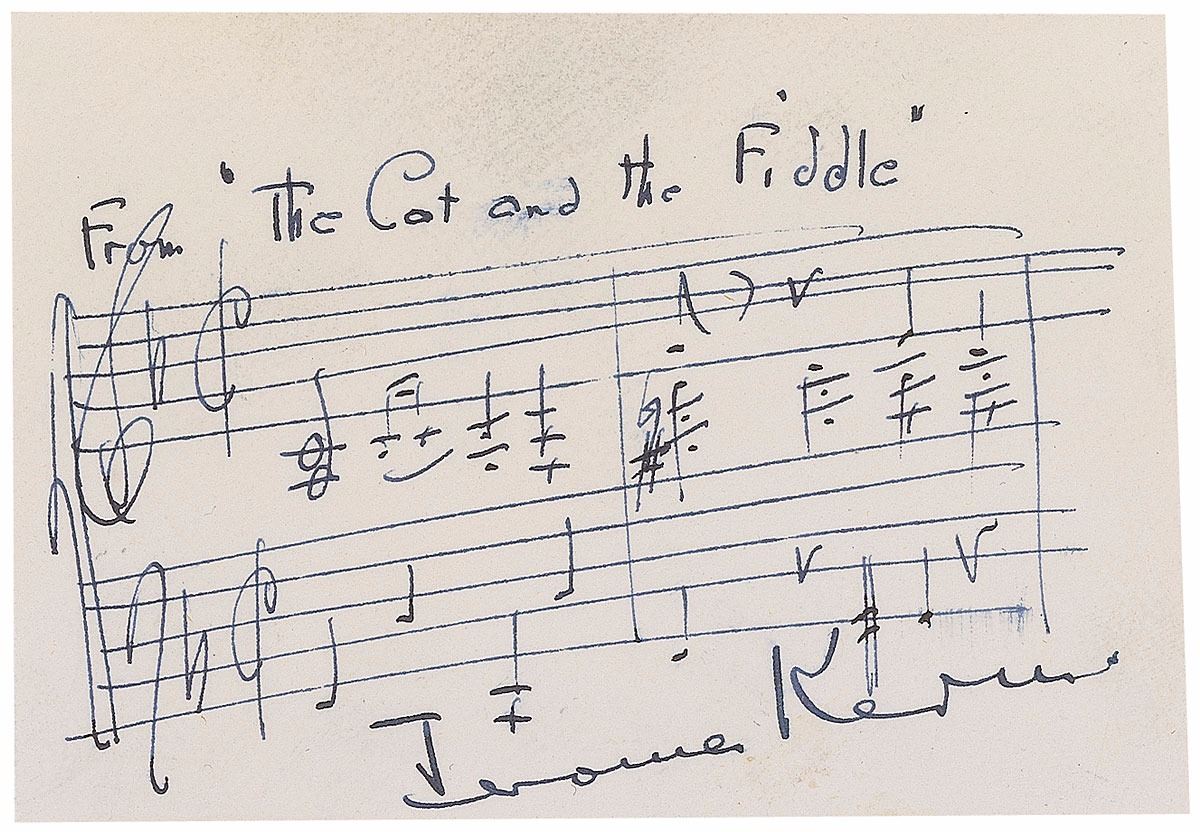 From "The Cat and the Fiddle"
Jerome Kern